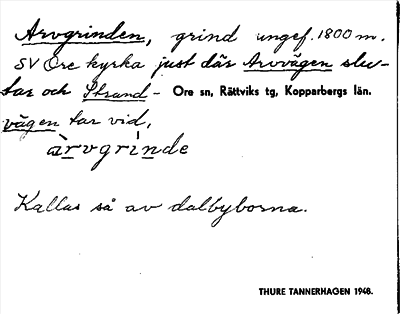 Arvgrinden, grind ungef. 1800 m.
SV Ore kyrka just där Arvvägen slu-
tar och Strand- Ore sn, Rättviks tg, Kopparbergs län.
vägen tar vid,
àrvgrìnde
Kallas så av dalbyborna.
THURE TANNERHAGEN 1948.